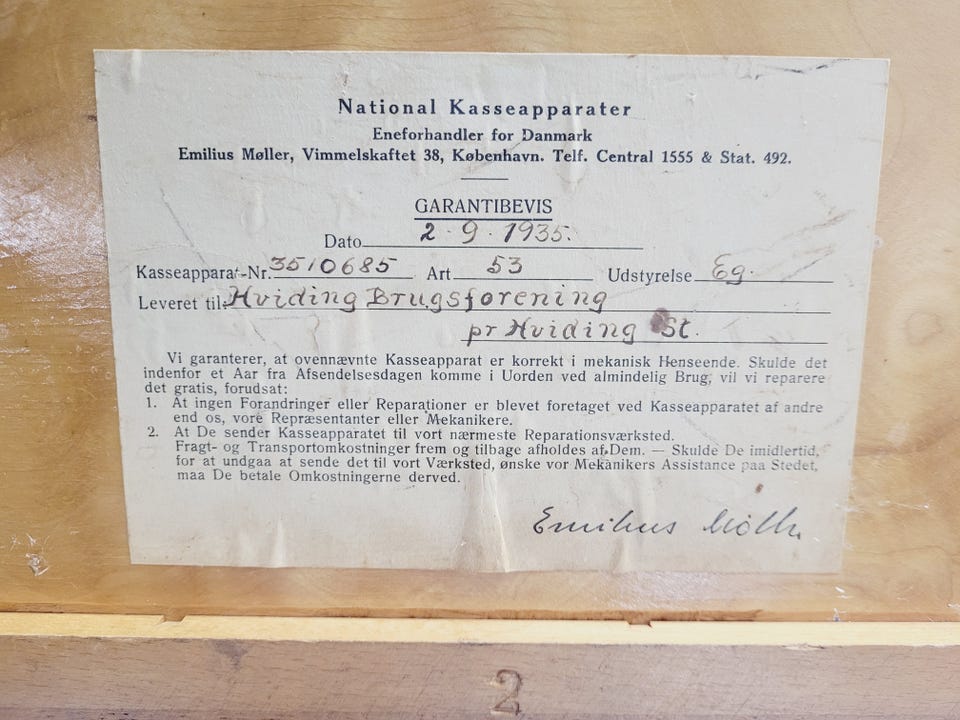 National Kasseapparater
Eneforhandler for Danmark
Emilius Møller, Vimmelskaftet 38, København. Telf. Central 1555 & Stat. 492.
GARANTIBEVIS
Dato 2.9.1935.
Kasseapparat-Nr. 3510685 Art 53 Udstyrelse Eg.
Leveret til Hviding Brugsforening
pr Hviding St.
Vi garanterer, at ovennævnte Kasseapparat er korrekt i mekanisk Henseende. Skulde det
indenfor et Aar fra Afsendelsesdagen komme i Uorden ved almindelig Brug, vil vi reparere
det gratis, forudsat:
1. At ingen Forandringer eller Reparationer er blevet foretaget ved Kasseapparatet af andre
end os, vore Repræsentanter eller Mekanikere.
2. At De sender Kasseapparatet til vort nærmeste Reparationsværksted.
Fragt- og Transportomkostninger frem og tilbage afholdes af Dem. — Skulde De imidlertid,
for at undgaa at sende det til vort Værksted, ønske vor Mekanikers Assistance paa Stedet,
maa De betale Omkostningerne derved.
Emilius Møller
2